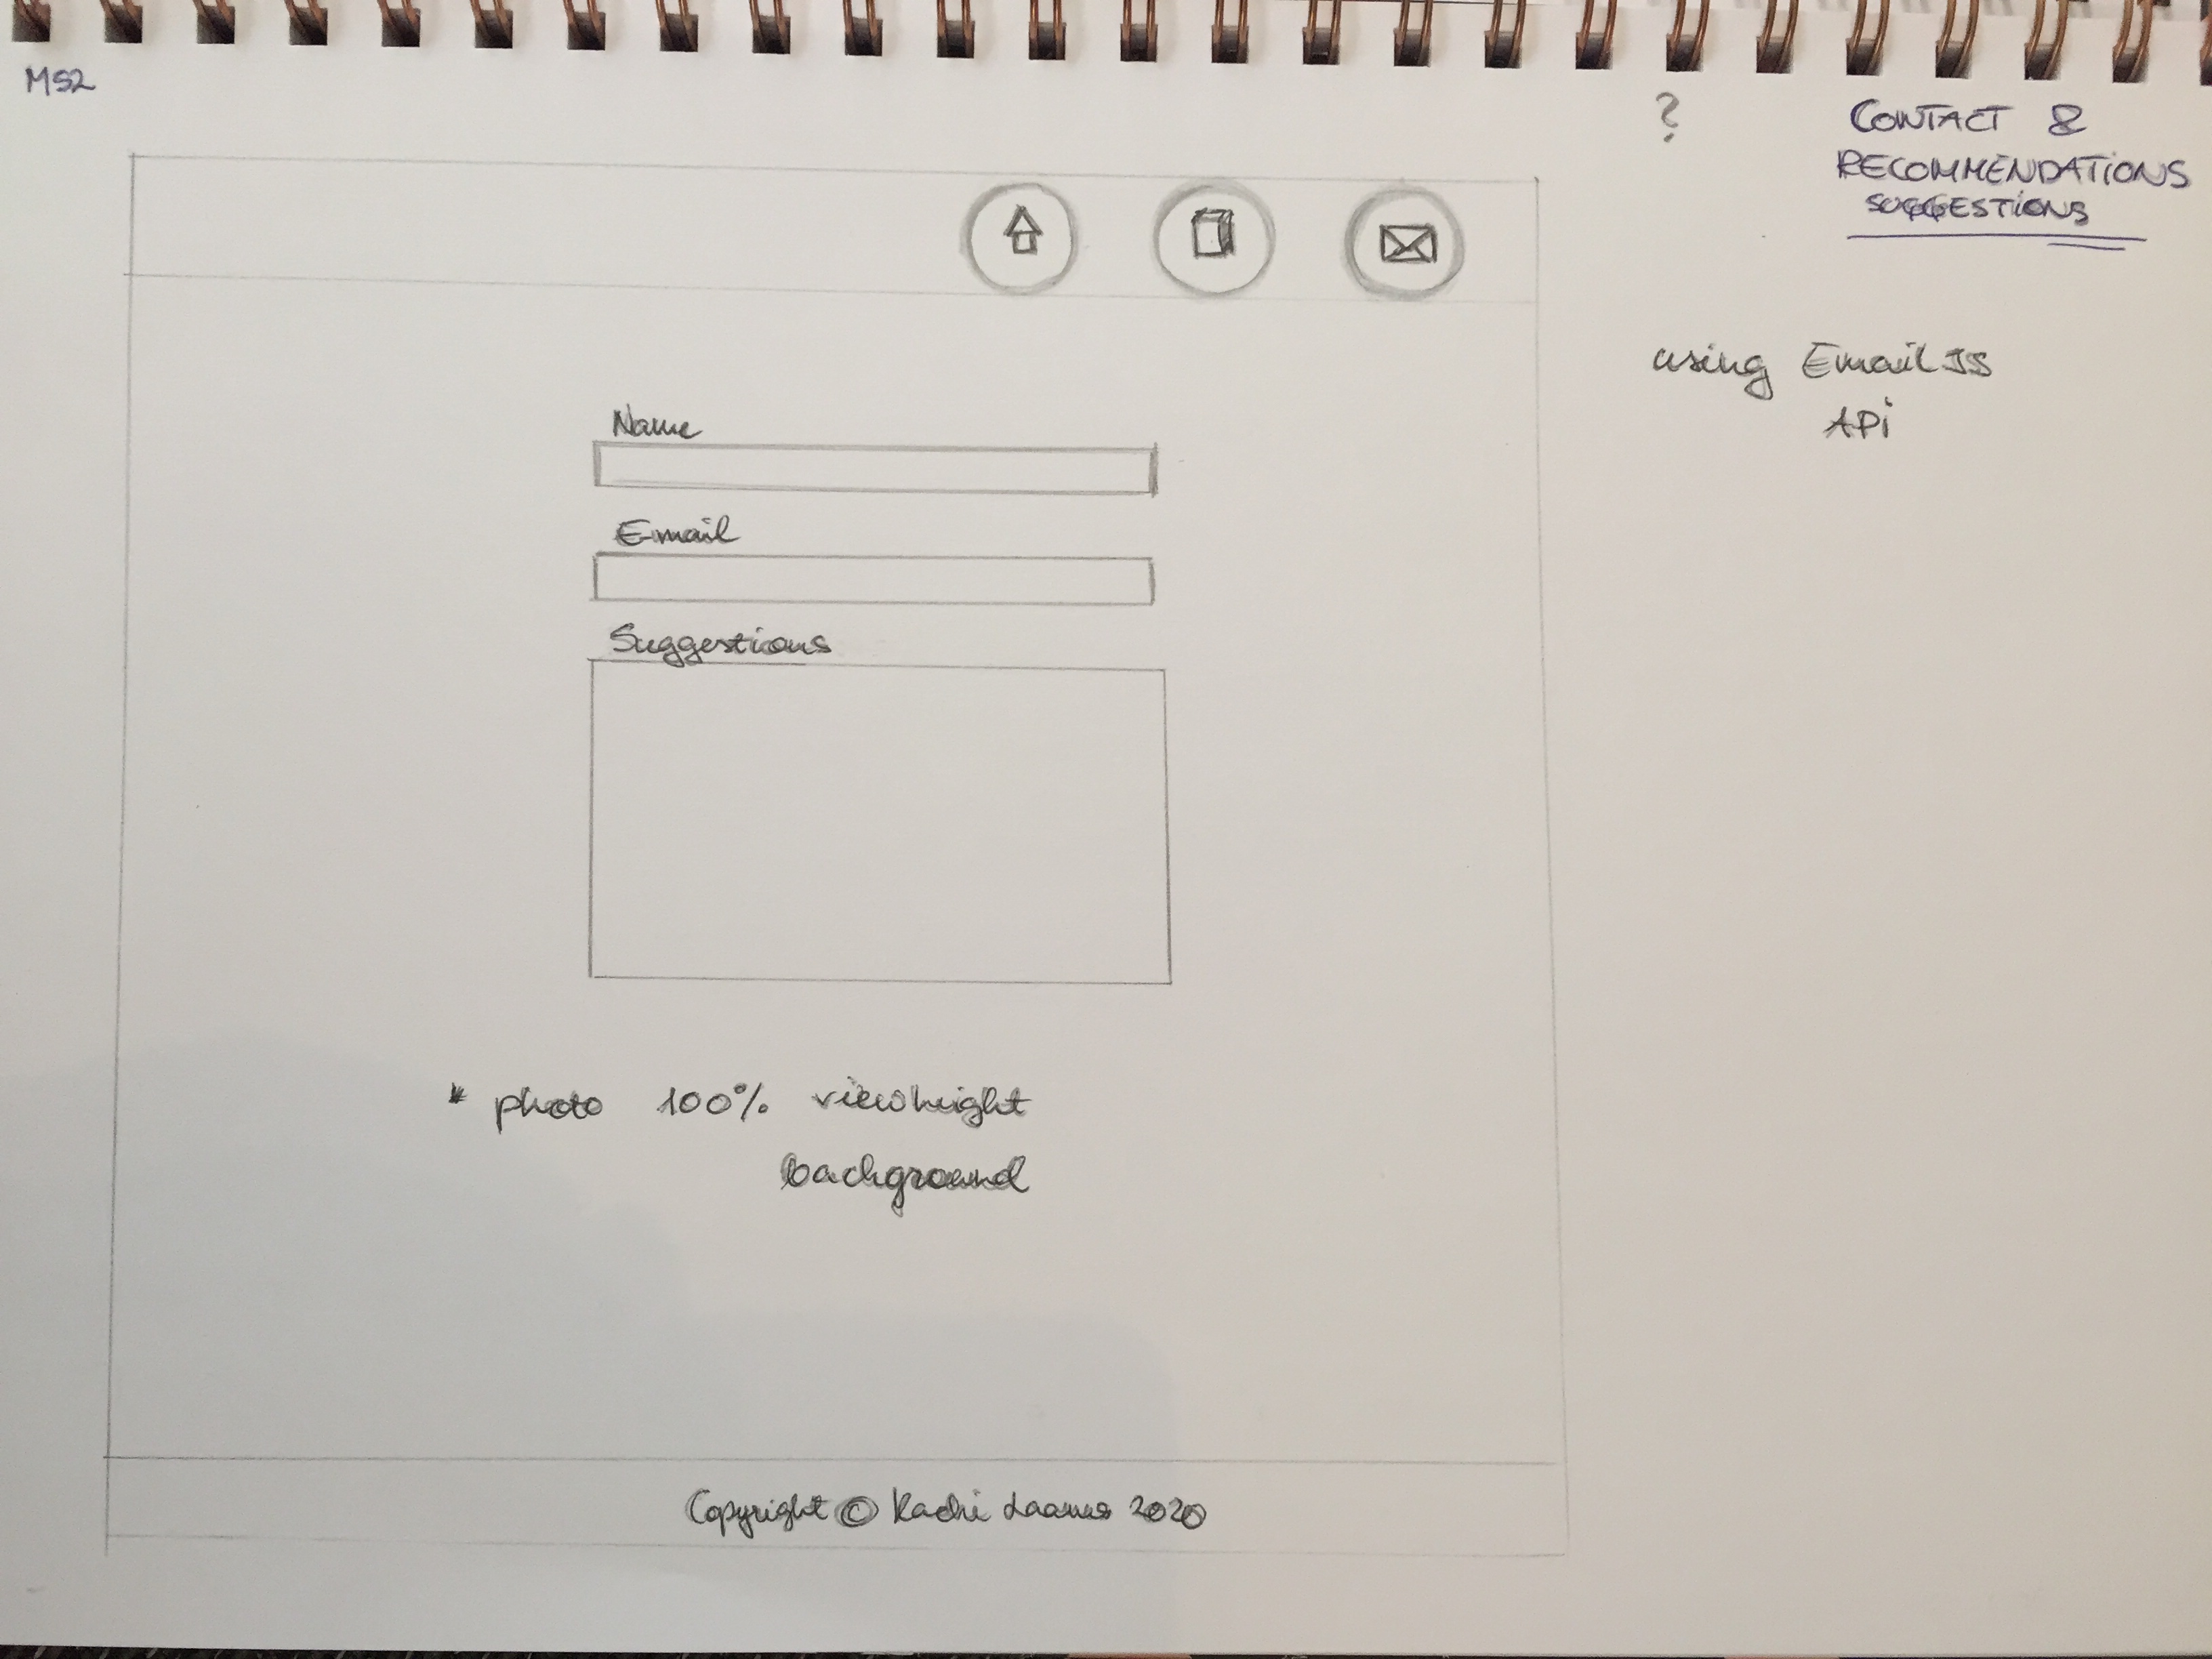 MS2
?
CONTACT &
RECOMMENDATIONS
SUGGESTIONS
using EmailJS
API
Name
Email
Suggestions
* photo 100% viewheight
background
Copyright © Kadri Laanes 2020